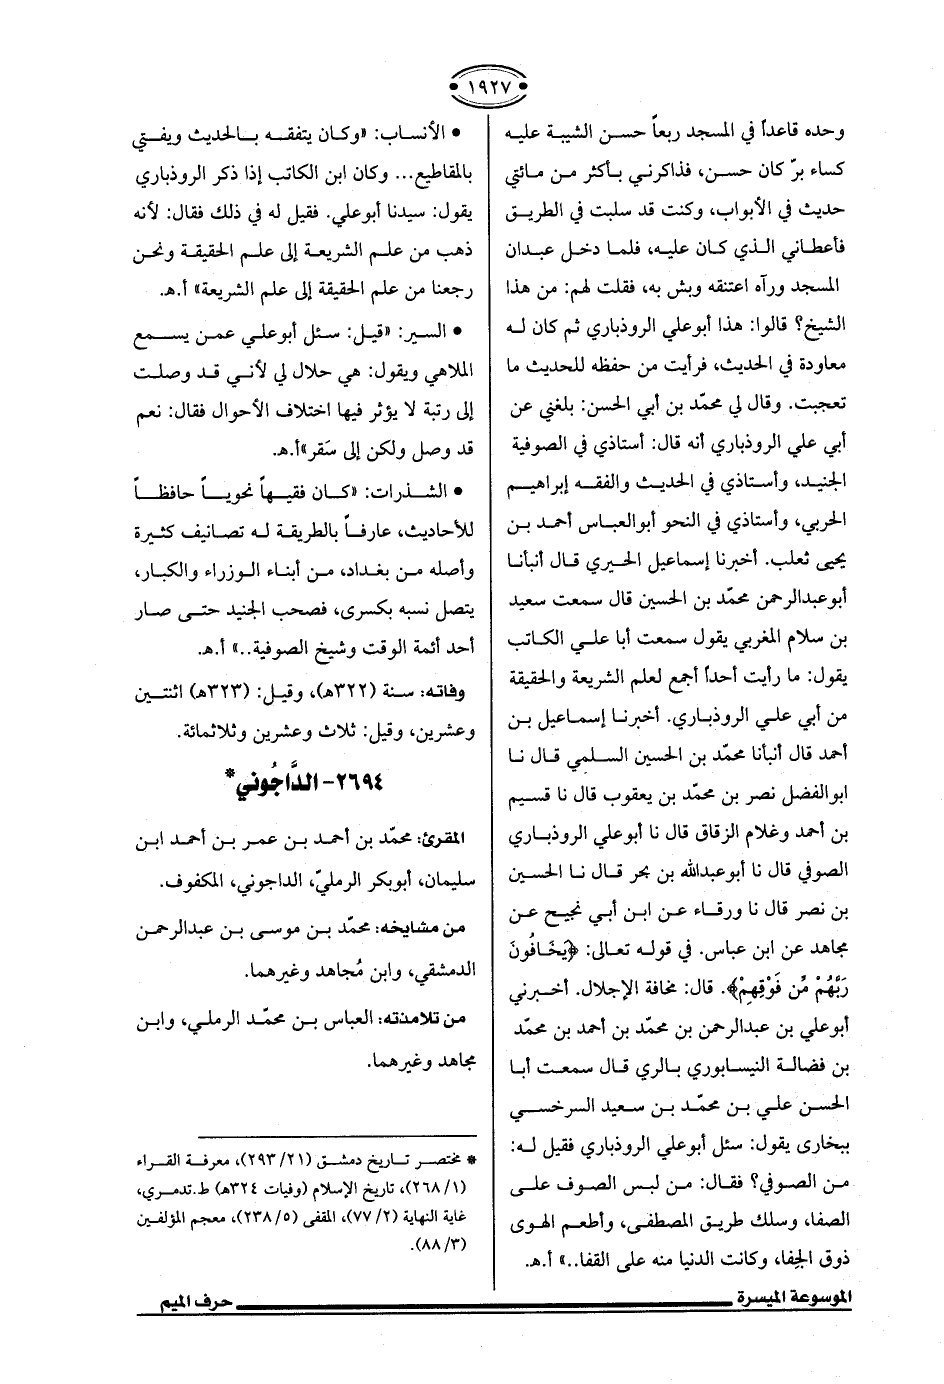 ١٩٢٧
وحده قاعداً في المسجد ربعاً حسن الشيبة عليه
كساء برّ كان حسن، فذاكرني بأكثر من مائتي
حديث في الأبواب، وكنت قد سلبت في الطريق
فأعطاني الذي كان عليه، فلما دخل عبدان
المسجد ورآه اعتنقه وبش به، فقلت لهم: من هذا
الشيخ؟ قالوا: هذا أبوعلي الروذباري ثم كان له
معاودة في الحديث، فرأيت من حفظه للحديث ما
تعجبت. وقال لي محمّد بن أبي الحسن: بلغني عن
أبي علي الروذباري أنه قال: أستاذي في الصوفية
الجنيد، وأستاذي في الحديث والفقه إبراهيم
الحربي، وأستاذي في النحو أبوالعباس أحمد بن
يحيى ثعلب. أخبرنا إسماعيل الحيري قال أنبأنا
أبوعبدالرحمن محمّد بن الحسين قال سمعت سعيد
بن سلام المغربي يقول سمعت أبا علي الكاتب
يقول: ما رأيت أحداً أجمع لعلم الشريعة والحقيقة
من أبي علي الروذباري. أخبرنا إسماعيل بن
أحمد قال أنبأنا محمّد بن الحسين السلمي قال نا
ابوالفضل نصر بن محمّد بن يعقوب قال نا قسيم
بن أحمد وغلام الزقاق قال نا أبوعلي الروذباري
الصوفي قال نا أبوعبدالله بن بحر قال نا الحسين
بن نصر قال نا ورقاء عن ابن أبي نجيح عن
مجاهد عن ابن عباس. في قوله تعالى: ﴿يَخَافُونَ
رَبَّهُمْ مِّن فَوْقِهِمْ﴾. قال: مخافة الإجلال. أخبرني
أبوعلي بن عبدالرحمن بن محمّد بن أحمد بن محمّد
بن فضالة النيسابوري بالري قال سمعت أبا
الحسن علي بن محمّد بن سعيد السرخسي
ببخارى يقول: سئل أبوعلي الروذباري فقيل له:
من الصوفي؟ فقال: من لبس الصوف على
الصفا، وسلك طريق المصطفى، وأطعم الهوى
ذوق الجفا، وكانت الدنيا منه على القفا..» أ.هـ.
• الأنساب: «وكان يتفقه بالحديث ويفتي
بالمقاطيع... وكان ابن الكاتب إذا ذكر الروذباري
يقول: سيدنا أبوعلي. فقيل له في ذلك فقال: لأنه
ذهب من علم الشريعة إلى علم الحقيقة ونحن
رجعنا من علم الحقيقة إلى علم الشريعة» أ.هـ.
• السير: «قيل: سئل أبوعلي عمن يسمع
الملاهي ويقول: هي حلال لي لأني قد وصلت
إلى رتبة لا يؤثر فيها اختلاف الأحوال فقال: نعم
قد وصل ولكن إلى سَقر» أ.هـ.
• الشذرات: «كان فقيهاً نحوياً حافظاً
للأحاديث، عارفاً بالطريقة له تصانيف كثيرة
وأصله من بغداد، من أبناء الوزراء والكبار،
يتصل نسبه بكسرى، فصحب الجنيد حتى صار
أحد أئمة الوقت وشيخ الصوفية..» أ.هـ.
وفاته: سنة (٣٢٢هـ)، وقيل: (٣٢٣هـ) اثنتين
وعشرين، وقيل: ثلاث وعشرين وثلاثمائة.
٢٦٩٤- الدَّاجُوني*
المقرئ: محمّد بن أحمد بن عمر بن أحمد ابن
سليمان، أبوبكر الرمليّ، الداجوني، المكفوف.
من مشايخه: محمّد بن موسى بن عبدالرحمن
الدمشقي، وابن مُجاهد وغيرهما.
من تلامذته: العباس بن محمّد الرملي، وابن
مجاهد وغيرهما.
* مختصر تاريخ دمشق (٢١/ ٢٩٣)، معرفة القراء
(١/ ٢٦٨)، تاريخ الإسلام (وفيات ٣٢٤هـ) ط.تدمري،
غاية النهاية (٢/ ٧٧)، المقفى (٥/ ٢٣٨)، معجم المؤلفين
(٣/ ٨٨).
الموسوعة الميسرة
حرف الميم